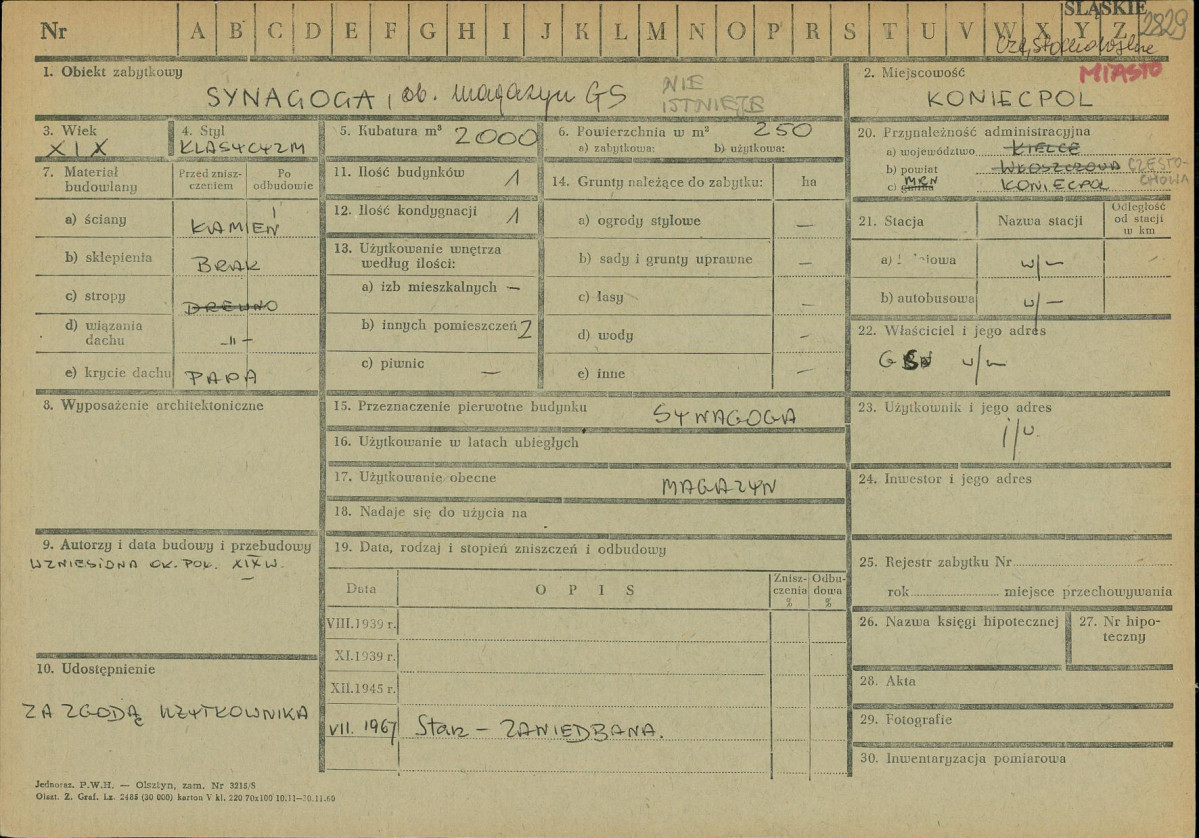 ŚLĄSKIE
2829
Nr A B C D E F G H I J K L M N O P R S T U V W X Y Z
MIASTO
1. Obiekt zabytkowy
SYNAGOGA, ob. magazyn GS
NIE
ISTNIEJE
2. Miejscowość
KONIECPOL
3. Wiek
XIX
4. Styl
KLASYCYZM
5. Kubatura m³ 2000
6. Powierzchnia w m² 250
a) zabytkowa: b) użytkowa:
20. Przynależność administracyjna
a) województwo KIELCE
b) powiat WŁOSZCZOWA CZĘSTO-
CHOWA
c) gmina MRN KONIECPOL
7. Materiał
budowlany
Przed znisz-
czeniem
Po
odbudowie
a) ściany KAMIEŃ
b) sklepienia BRAK
c) stropy DREWNO
d) wiązania
dachu -ıı-
e) krycie dachu PAPA
11. Ilość budynków 1
12. Ilość kondygnacji 1
13. Użytkowanie wnętrza
według ilości:
a) izb mieszkalnych —
b) innych pomieszczeń 2
c) piwnic —
14. Grunty należące do zabytku: ha
a) ogrody stylowe —
b) sady i grunty uprawne —
c) lasy —
d) wody —
e) inne —
21. Stacja Nazwa stacji Odległość
od stacji
w km
a) w/— —
b) autobusowa w/—
22. Właściciel i jego adres
w/m
8. Wyposażenie architektoniczne
15. Przeznaczenie pierwotne budynku SYNAGOGA
16. Użytkowanie w latach ubiegłych
17. Użytkowanie obecne MAGAZYN
18. Nadaje się do użycia na
23. Użytkownik i jego adres
24. Inwestor i jego adres
9. Autorzy i data budowy i przebudowy
WZNIESIONA OK. POŁ. XIX W.
19. Data, rodzaj i stopień zniszczeń i odbudowy
Data O P I S Znisz-
czenia
%
Odbu-
dowa
%
VIII.1939 r.
XI.1939 r.
XII.1945 r.
VII. 1967 Stan — ZANIEDBANA.
25. Rejestr zabytku Nr
rok miejsce przechowywania
26. Nazwa księgi hipotecznej
27. Nr hipo-
teczny
10. Udostępnienie
ZA ZGODĄ UŻYTKOWNIKA
28. Akta
29. Fotografie
30. Inwentaryzacja pomiarowa
Jednoraz. P.W.H. — Olsztyn, zam. Nr 3215/5
Olszt. Z. Graf. Lz. 2485 (30 000) karton V kl. 220 70x100 10.11—30.11.60